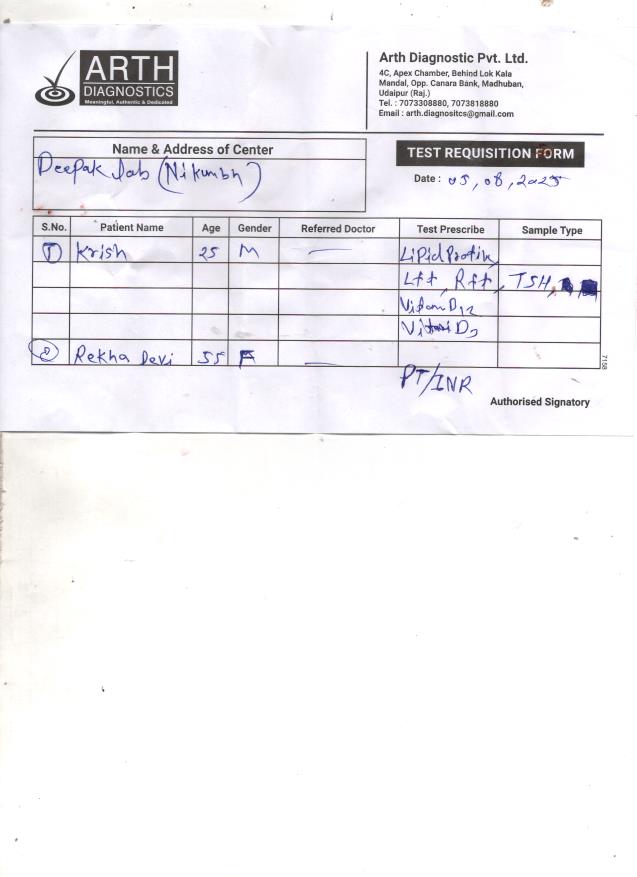 ARTH
DIAGNOSTICS
Meaningful, Authentic & Dedicated
Arth Diagnostic Pvt. Ltd.
4C, Apex Chamber, Behind Lok Kala
Mandal, Opp. Canara Bank, Madhuban,
Udaipur (Raj.)
Tel. : 7073308880, 7073818880
Email : arth.diagnositcs@gmail.com
Name & Address of Center
Deepak Lab (Nikumbh)
TEST REQUISITION FORM
Date : 05, 08, 2025
S.No. Patient Name Age Gender Referred Doctor Test Prescribe Sample Type
1 Krish 25 M — Lipid Profile,
Lft, Rft, TSH,
Vitam D12
Vitam D3
2 Rekha Devi 55 F —
PT/INR
7158
Authorised Signatory